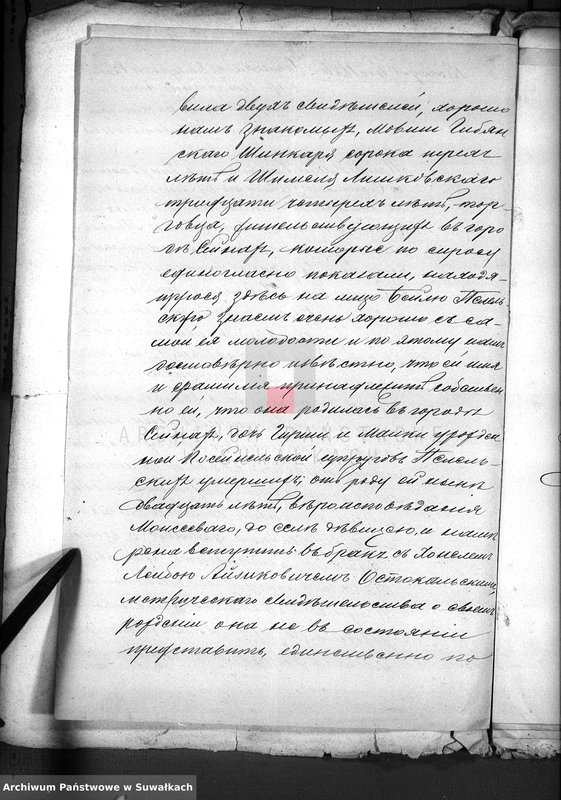 вила двухъ свидѣтелей, хорошо
намъ знакомыхъ, Мовшу Гибян
скаго Шинкаря сорока трехъ
лѣтъ и Шимеля Лишковскаго
тридцати четырехъ лѣтъ, тор-
говца, жительствующихъ въ горо
дѣ Сейнах, которые по спросу
единогласно показали, находя-
щуюся здѣсь на лицо Бейлю Пель
скую знаемъ очень хорошо съ са-
мой ея молодости и по этому намъ
достовѣрно извѣстно, что ей имя
и фамилія принадлежитъ собствен
но ей, что она родилась въ городѣ
Сейнах, дочь Гирши и Малки урожден
ной супруговъ Пель-
скихъ умершихъ; отъ роду ей нынѣ
двадцать лѣтъ, вѣроисповѣданія
Моисеева, до селѣ дѣвицею, и намѣ
рена вступить въ бракъ съ
Лейбою Айзиковичемъ Остокальскимъ,
метрическаго свидѣтельства о своемъ
рожденіи она не въ состояніи
представить, единственно по
Archiwum Państwowe w Suwałkach